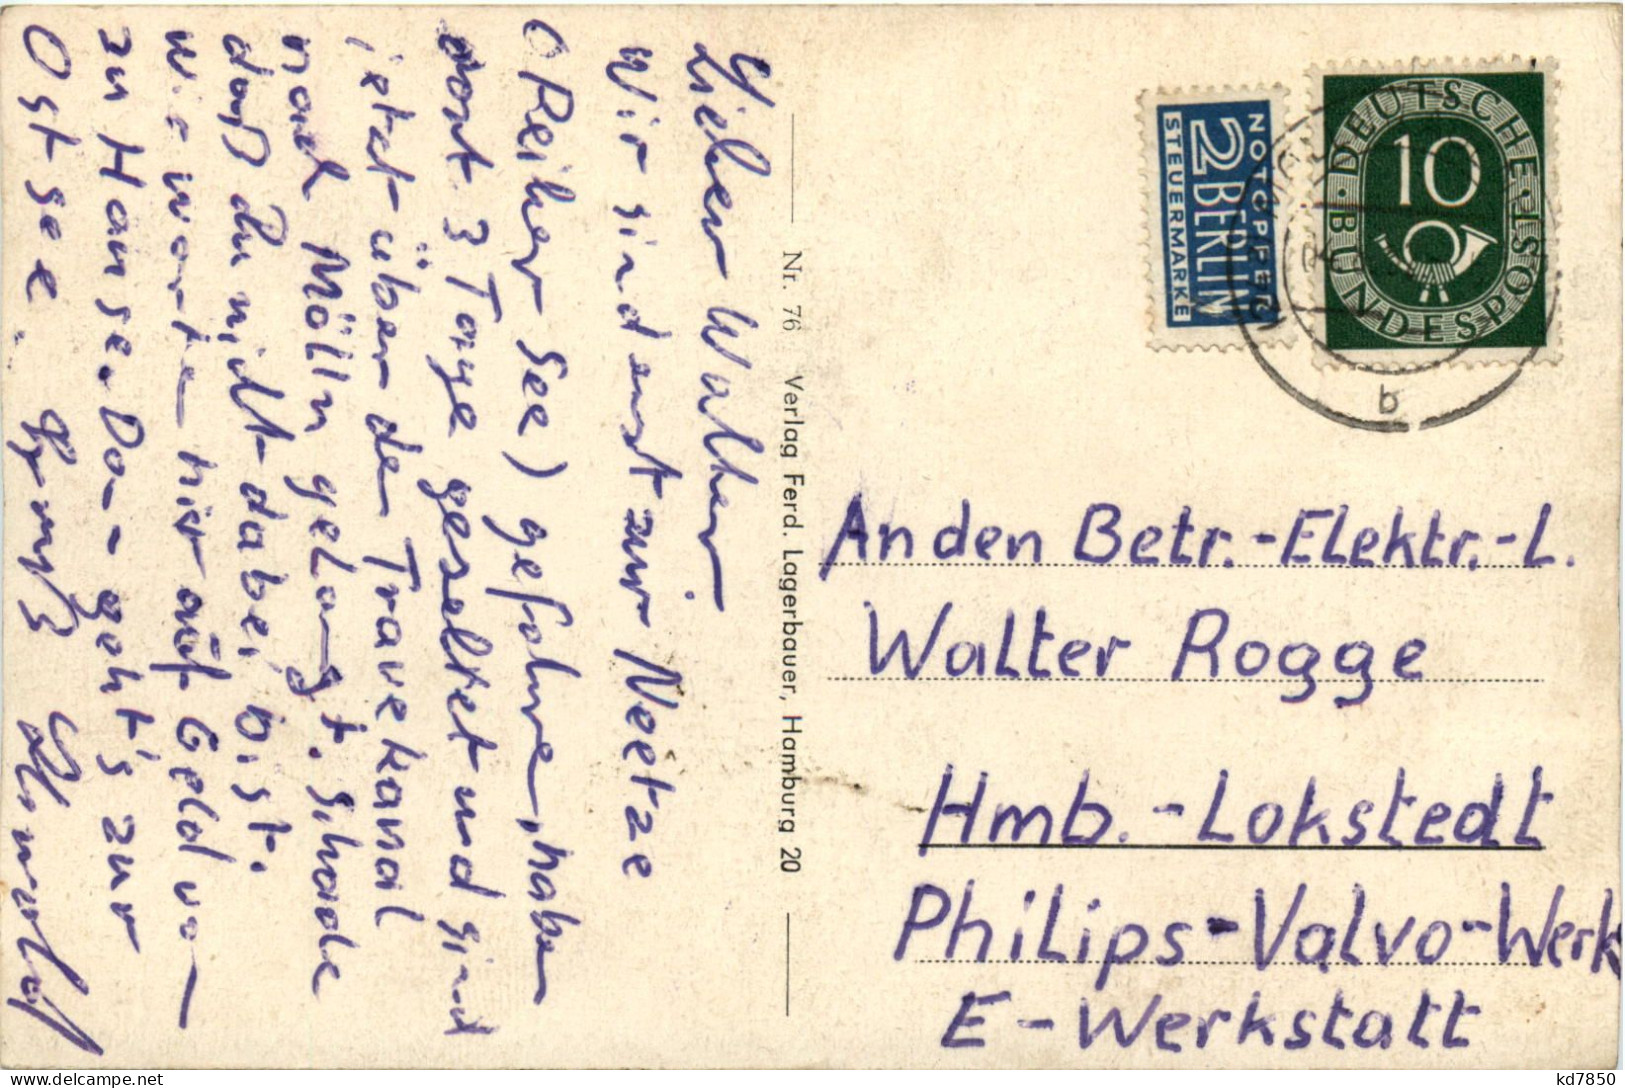 Lieber Walter
Wir sind erst zur Neetze
(Reiher See) gefahren, haben
dort 3 Tage gezeltet und sind
jetzt über den Travekanal
nach Mölln gelangt. Schade
daß Du nicht dabei bist.
Wir warten hier auf Geld von
zu Hause. Dann geht's zur
Ostsee. Gruß
Nr. 76 Verlag Ferd. Lagerbauer, Hamburg 20
NOTOPFER
2 BERLIN
STEUERMARKE
DEUTSCHE · POST · BUNDESPOST
10
b
An den Betr.-Elektr.-L.
Walter Rogge
Hmb.-Lokstedt
Philips-Valvo-Werk
E-Werkstatt
kd7850